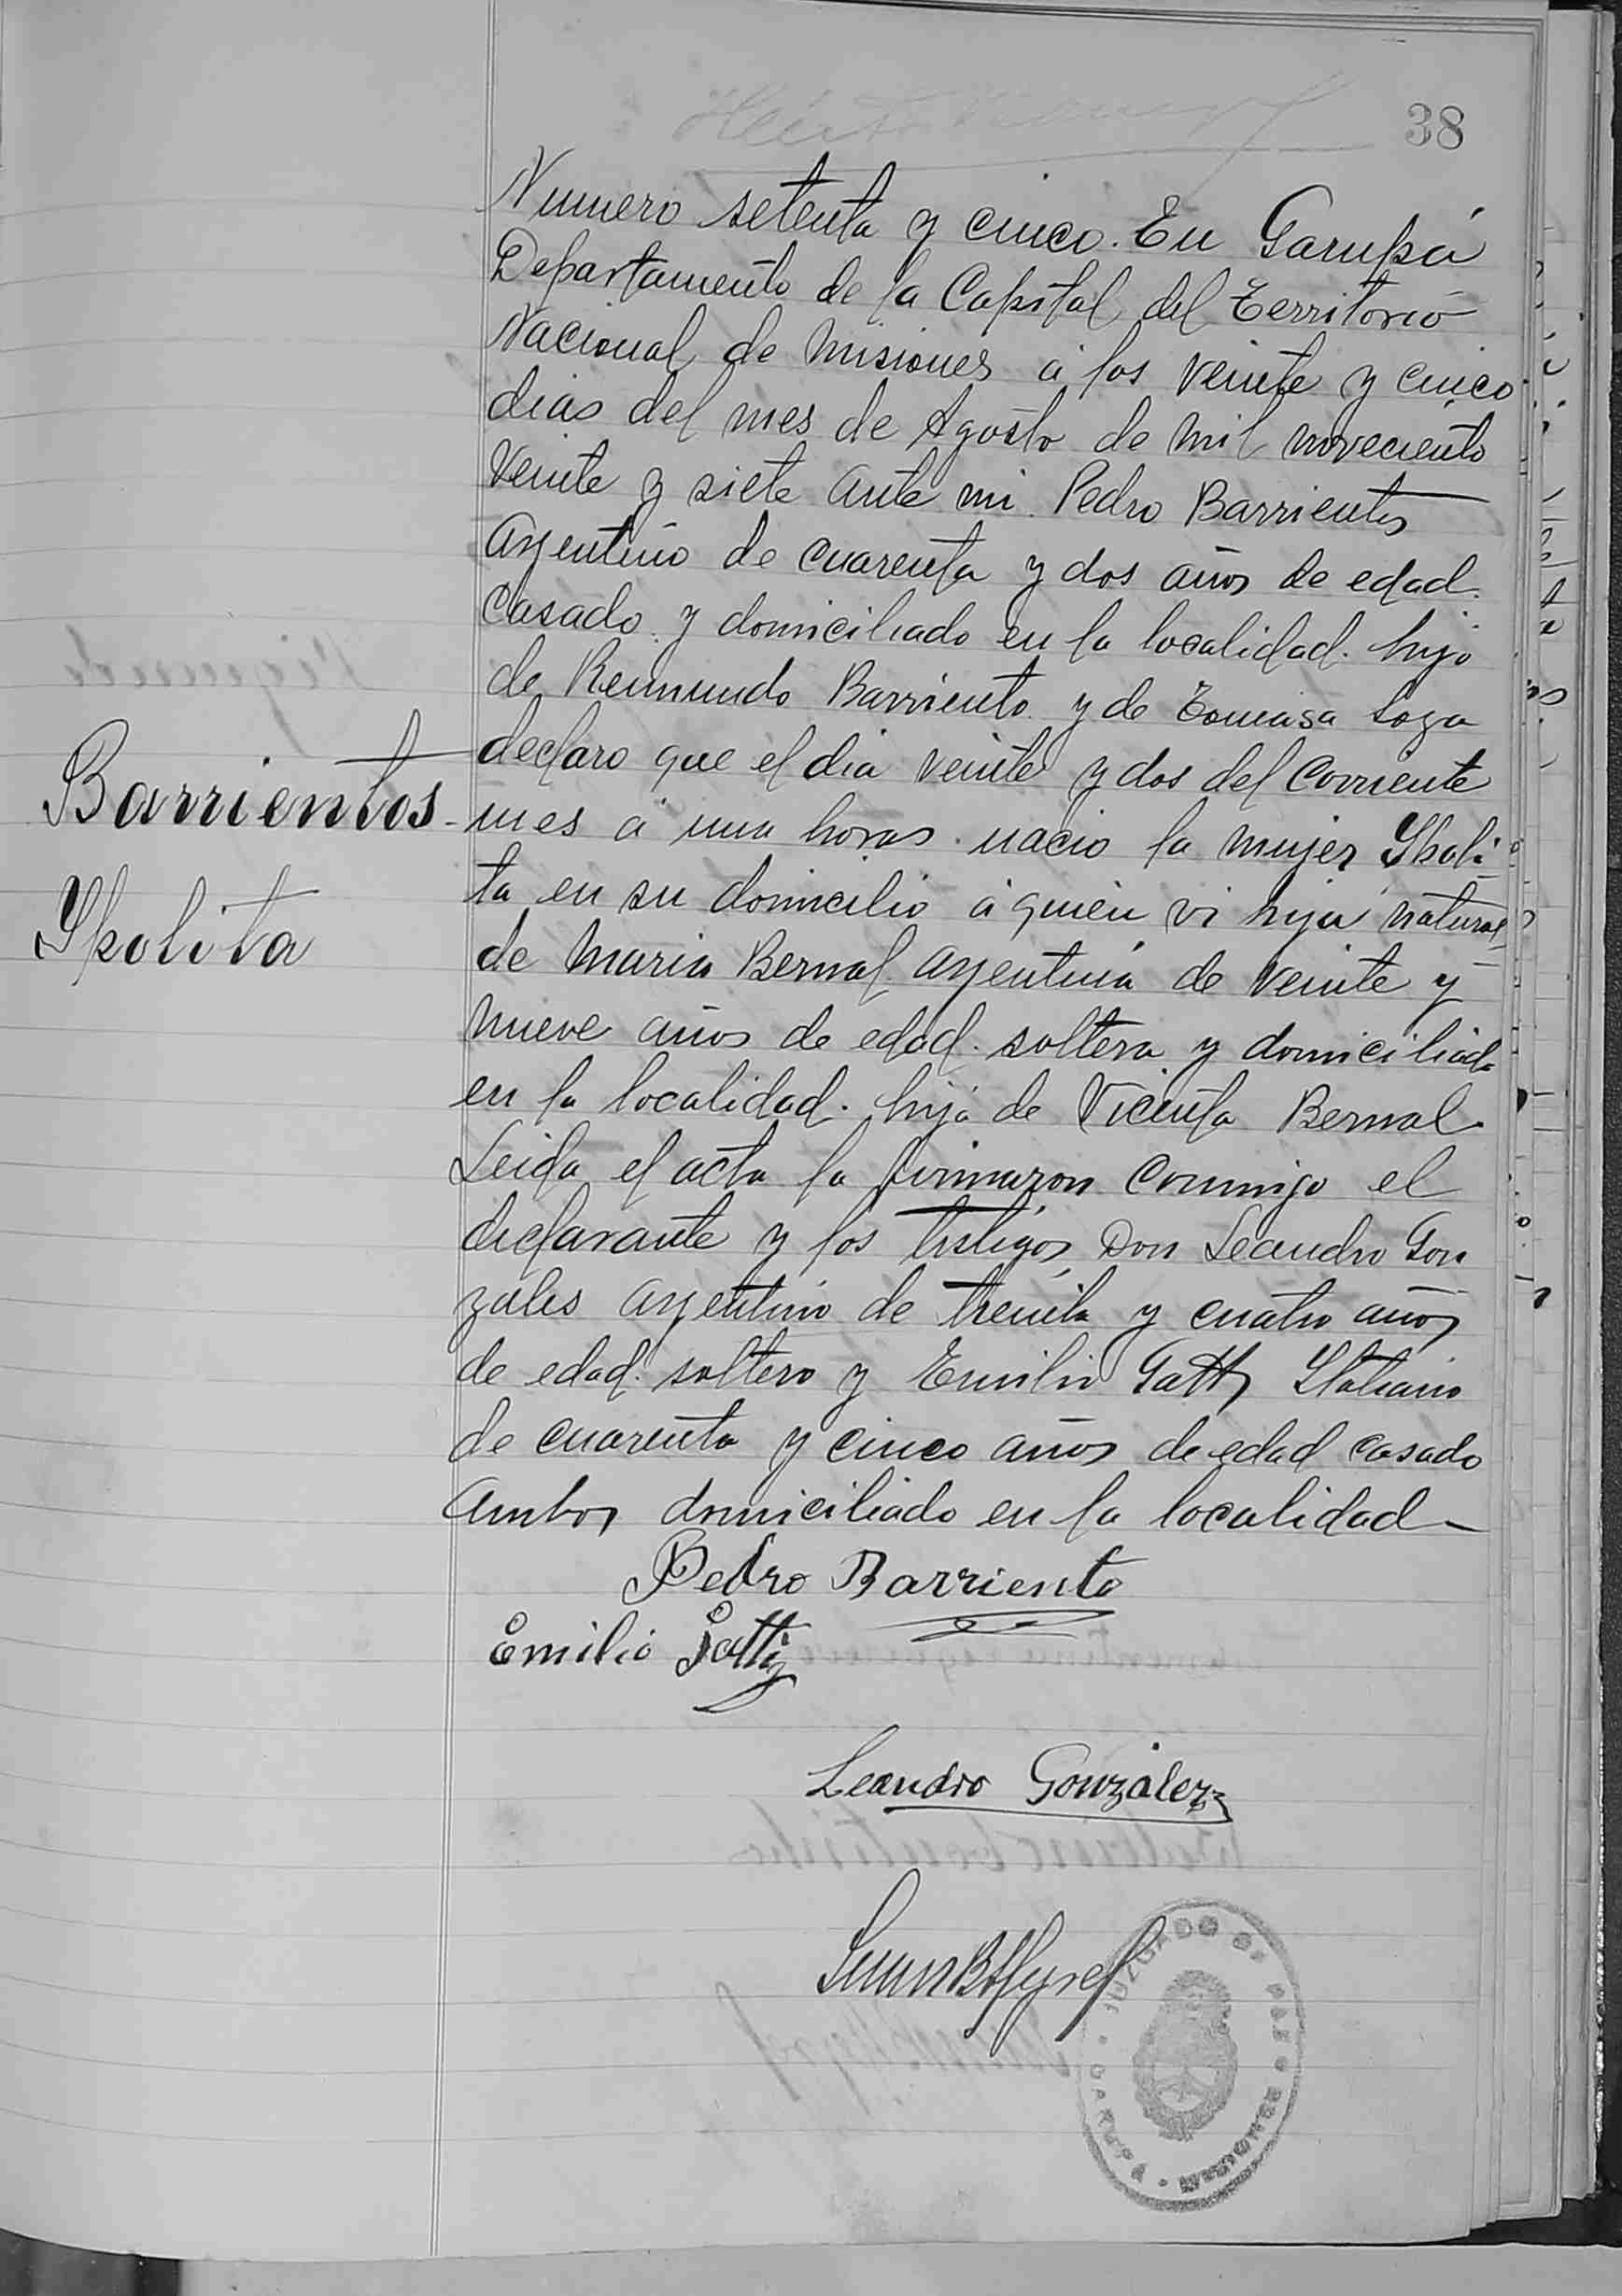 38
Numero setenta y cinco. En Garupá
Departamento de la Capital del Territorio
Nacional de Misiones á los veinte y cinco
dias del mes de Agosto de mil noveciento
veinte y siete ante mi. Pedro Barrientos
Argentino de cuarenta y dos años de edad.
Casado. y domiciliado en la localidad. hijo
de Reimundo Barriento y de Tomasa Soza
declaro que el dia veinte y dos del corriente
Barrientos
mes á una horas nacio la mujer Ypoli-
Ypolita
ta en su domicilio á quien vi hija natural
de Maria Bernal Argentina de veinte y
nueve años de edad. soltera y domiciliada
en la localidad. hija de Vicenta Bernal.
Leida el acta la firmaron conmigo el
declarante y los testigos Don Leandro Gon
zales Argentino de treinta y cuatro años
de edad. soltero y Emilio Gatti Italiano
de cuarenta y cinco años de edad casado
Ambos domiciliado en la localidad
Pedro Barriento
Emilio Gatti
Leandro González
JUZGADO DE PAZ
GARUPÁ · MISIONES